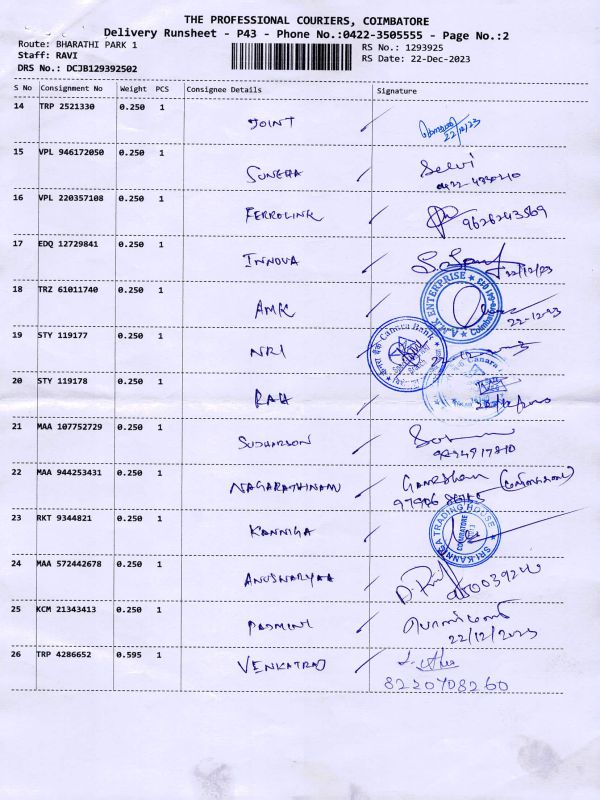 THE PROFESSIONAL COURIERS, COIMBATORE
Delivery Runsheet - P43 - Phone No.:0422-3505555 - Page No.:2
Route: BHARATHI PARK 1
RS No.: 1293925
Staff: RAVI
RS Date: 22-Dec-2023
DRS No.: DCJB129392502
S No Consignment No Weight PCS Consignee Details Signature
14 TRP 2521330 0.250 1 JOINT 22/12/23
15 VPL 946172050 0.250 1 SUNEHA Selvi
16 VPL 220357108 0.250 1 FERROLINK 9626243569
17 EDQ 12729841 0.250 1 INNOVA 22/12/23
18 TRZ 61011740 0.250 1 AMK 22-12-23
A.M.K ENTERPRISE Coimbatore
19 STY 119177 0.250 1 NRI
Canara Bank
20 STY 119178 0.250 1 RAH
Canara
21 MAA 107752729 0.250 1 SUDHARSON
22 MAA 944253431 0.250 1 NAGARATHINAM Ganeshan
23 RKT 9344821 0.250 1 KANNIGA
SRI KANNIGA TRADING HOUSE COIMBATORE
24 MAA 572442678 0.250 1
25 KCM 21343413 0.250 1 PADMINI
22/12/2023
26 TRP 4286652 0.595 1 VENKATRAJ
8220708260